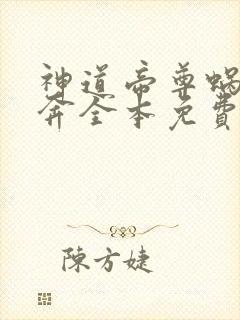 神道帝尊蜗
奔全本免費
陳方婕